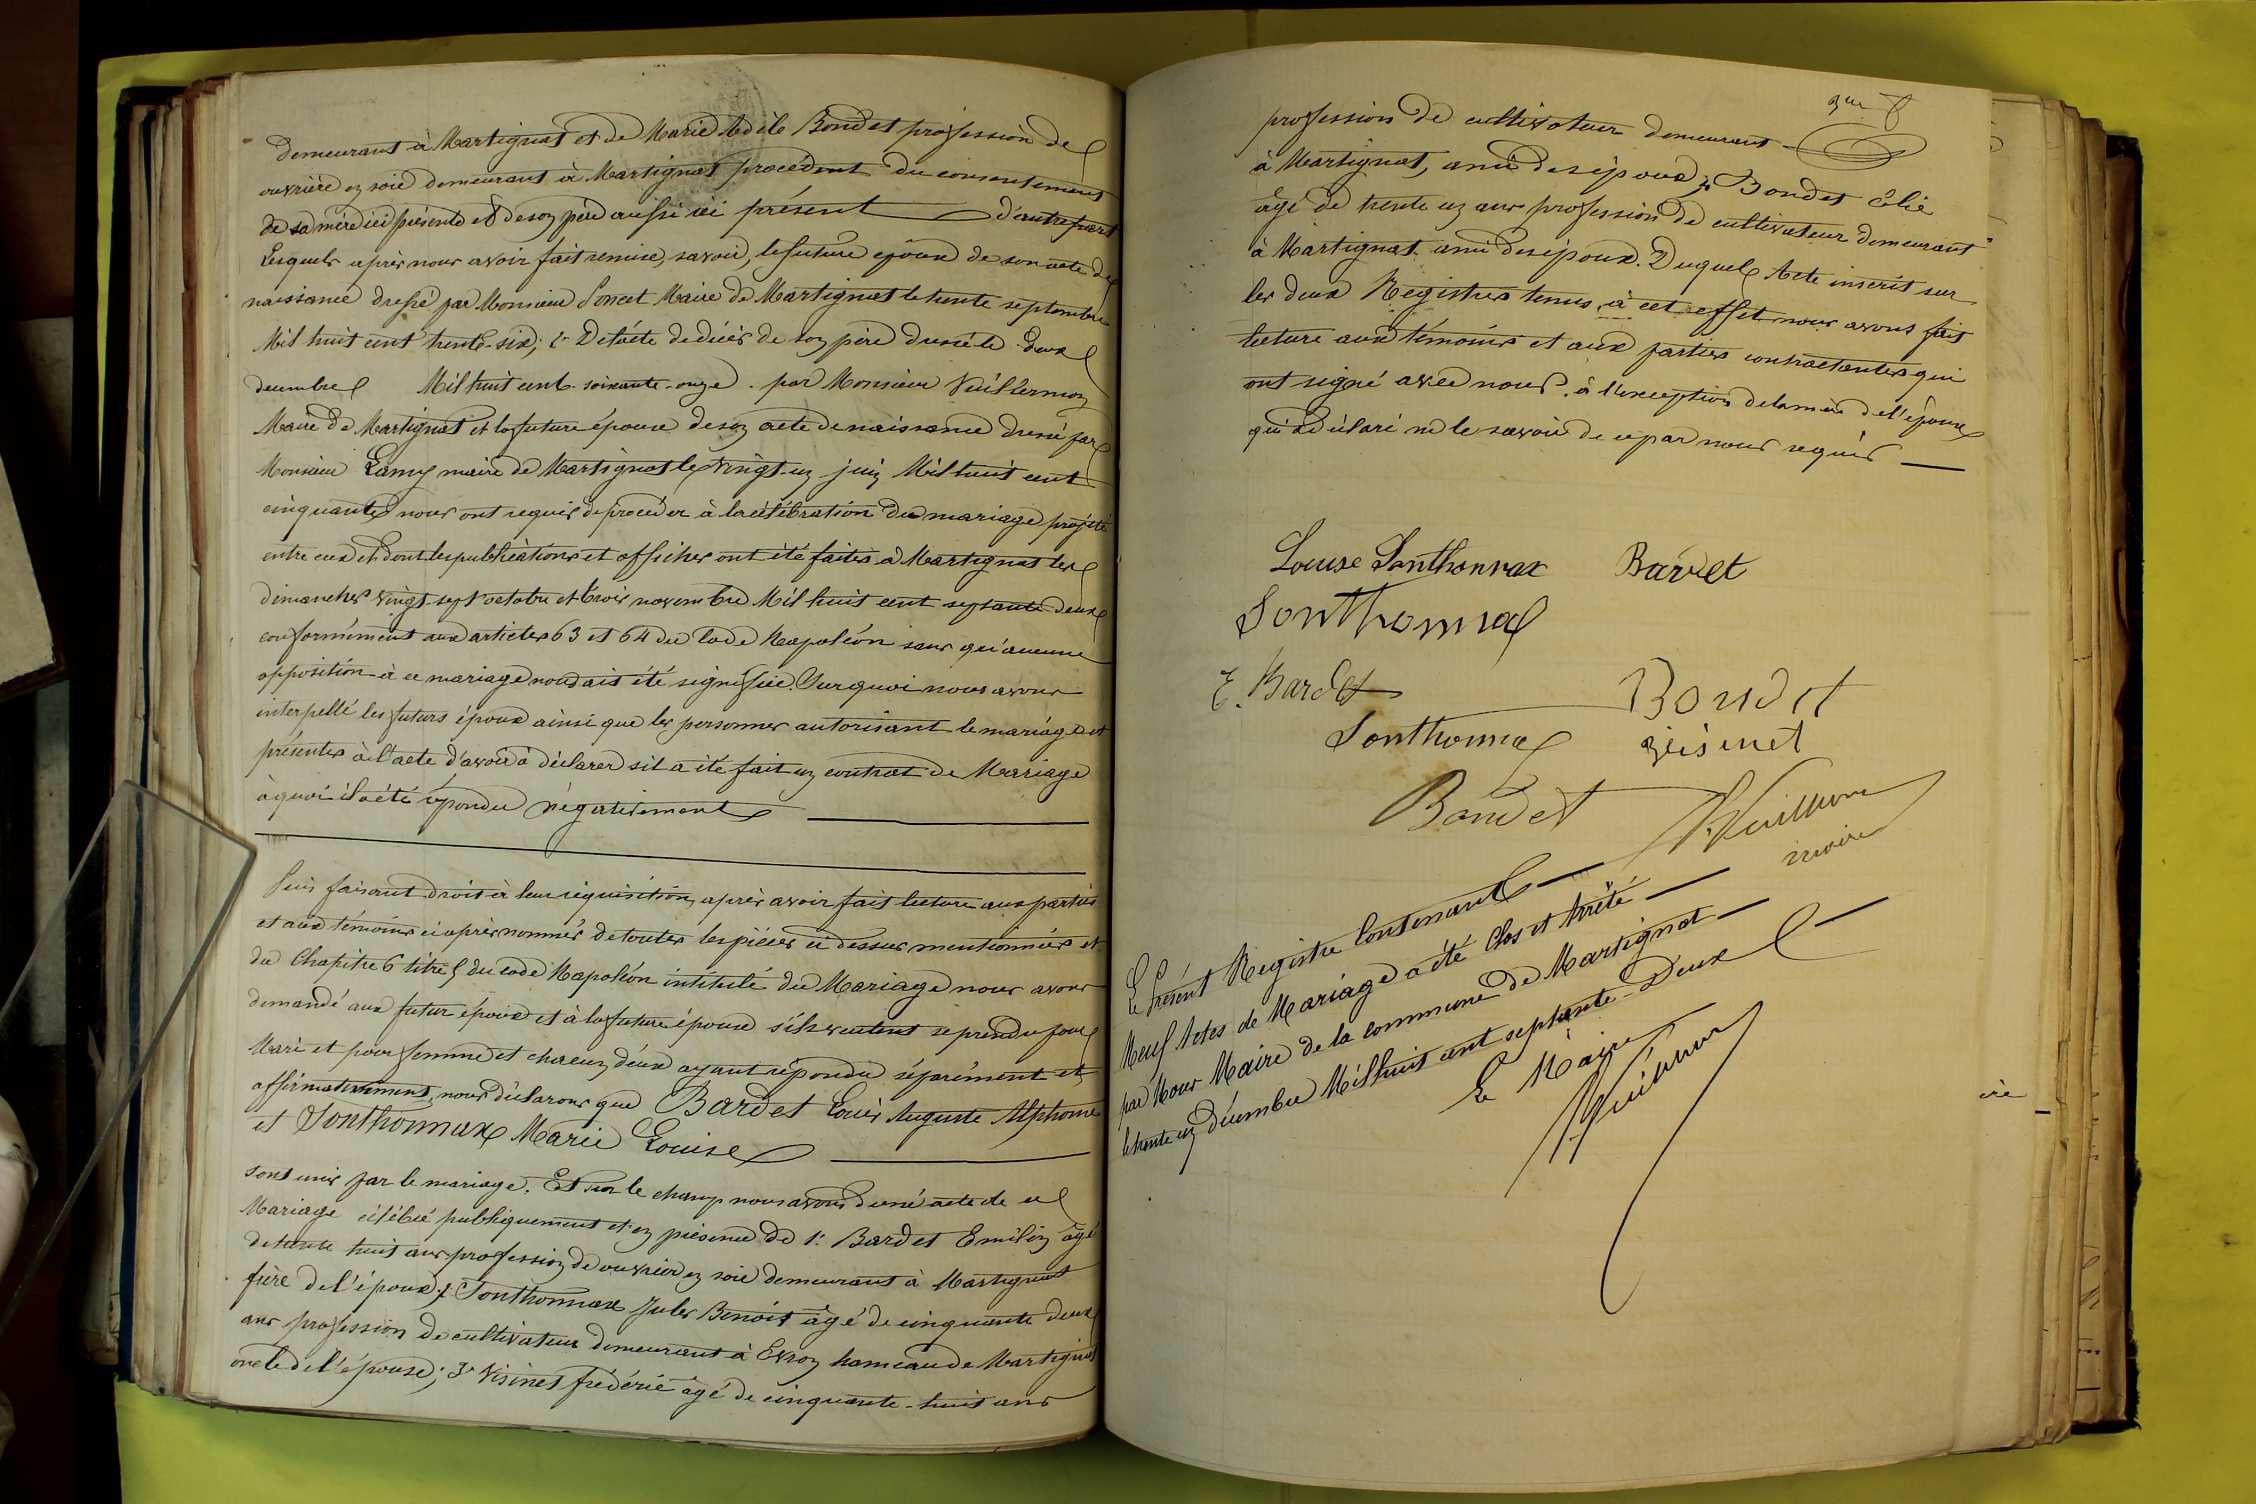 demeurant à Martignat et de Marie Adèle Bondet profession de
ouvrière en soie demeurant à Martignat procédant du consentement
de sa mère ici présente et de son père aussi ici présent d'autre part
Lesquels après nous avoir fait remise, savoir, le future époux de son acte de
naissance dressé par Monsieur Poncet Maire de Martignat le trente septembre
Mil huit cent trente-six; 2° De l'acte de décès de son père dressé le deux
décembre Mil huit cent soixante-onze par Monsieur Vuillermoz
Maire de Martignat et la future épouse de son acte de naissance dressé par
Monsieur Lamy maire de Martignat le vingt-un juin Mil huit cent
cinquante nous ont requis de procéder à la célébration du mariage projeté
entre eux et dont les publications et affiches ont été faites à Martignat les
dimanches vingt-sept octobre et trois novembre Mil huit cent septante deux
conformément aux articles 63 et 64 du Code Napoléon sans qu'aucune
opposition à ce mariage nous ait été signifiée. Sur quoi nous avons
interpellé les futurs époux ainsi que les personnes autorisant le mariage et
présentes à l'acte d'avoir à déclarer s'il a été fait un contrat de Mariage
à quoi il a été répondu négativement
Puis faisant droit à leur réquisition, après avoir fait lecture aux parties
et aux témoins ci après nommés de toutes les pièces ci dessus mentionnées et
du Chapitre 6 titre 5 du code Napoléon intitulé du Mariage nous avons
demandé aux futur époux et à la future épouse s'ils veulent se prendre pour
Mari et pour femme et chacun d'eux ayant répondu séparément et
affirmativement, nous déclarons que Bardet Louis Auguste Alphonse
et Sonthonnax Marie Louise
sont unis par le mariage. Et sur le champ nous avons dressé acte de ce
Mariage célébré publiquement et en présence de 1° Bardet Emilin âgé
de trente huit ans profession de ouvrier en soie demeurant à Martignat
frère de l'époux; 2° Sonthonnax Jules Benoit âgé de cinquante deux
ans profession de cultivateur demeurant à Evron hameau de Martignat
oncle de l'épouse; 3° Visinet frédéric âgé de cinquante-huit ans
profession de cultivateur demeurant
à Martignat, ami des époux; 4° Bondet Elie
âgé de trente un ans profession de cultivateur demeurant
à Martignat ami des époux. Duquel Acte inscrit sur
les deux Registres tenus à cet effet nous avons fait
lecture aux témoins et aux parties contractantes qui
ont signé avec nous, à l'exception de la mère de l'épouse
qui a déclaré ne le savoir de ce par nous requis
Louise Sonthonnax Bardet
Sonthonnax
E. Bardet Bondet
Sonthonnax visinet
Bondet Vuillermoz
maire
Le Présent Registre Contenant
Neuf Actes de Mariage a été Clos et Arrêté
par Nous Maire de la commune de Martignat
le trente un Décembre Mil huit cent septante-Deux
Le Maire
Vuillermoz